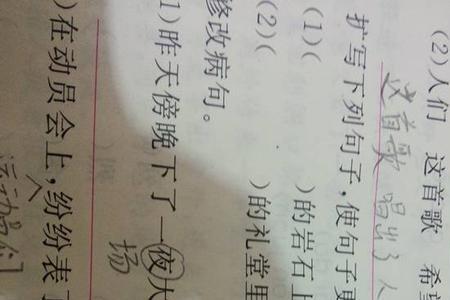 (2)人们 这首歌 希
这首歌 唱出了人
扩写下列句子,使句子更
(1)( )的岩石上
(2)( )的礼堂里
修改病句。
1)昨天傍晚下了一夜大
场
)在动员会上,纷纷表
运动员们